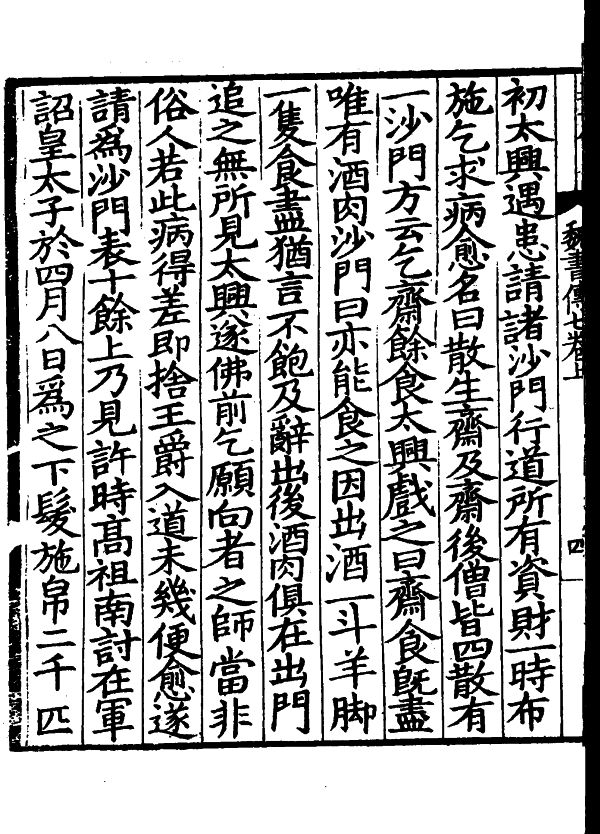 初太興遇患請諸沙門行道所有資財一時布
施乞求病愈名曰散生齋及齋後僧皆四散有
一沙門方云乞齋餘食太興戲之曰齋食旣盡
唯有酒肉沙門曰亦能食之因出酒一斗羊脚
一隻食盡猶言不飽及辭出後酒肉俱在出門
追之無所見太興遂佛前乞願向者之師當非
俗人若此病得差即捨王爵入道未幾便愈遂
請爲沙門表十餘上乃見許時高祖南討在軍
詔皇太子於四月八日爲之下髮施帛二千匹
魏書傳七卷上
四